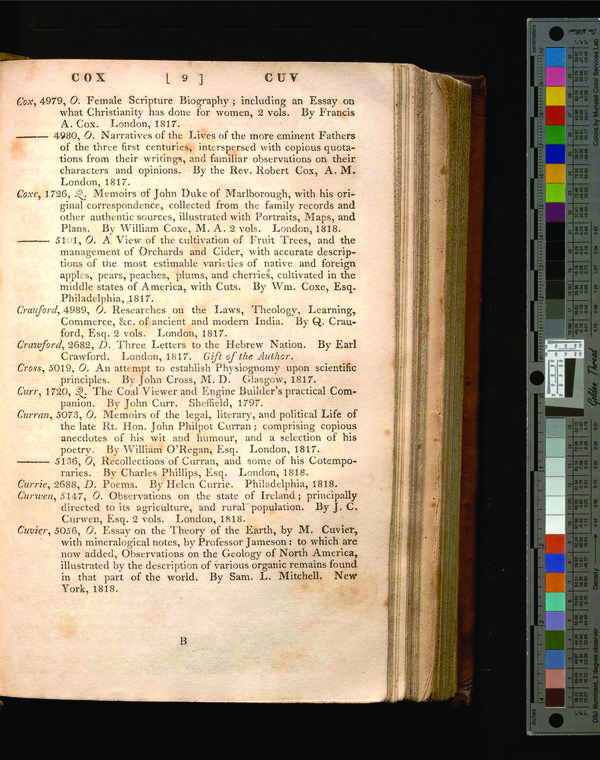 COX [ 9 ] CUV
Cox, 4979, O. Female Scripture Biography; including an Essay on
what Christianity has done for women, 2 vols. By Francis
A. Cox. London, 1817.
—— 4980, O. Narratives of the Lives of the more eminent Fathers
of the three first centuries, interspersed with copious quota-
tions from their writings, and familiar observations on their
characters and opinions. By the Rev. Robert Cox, A. M.
London, 1817.
Coxe, 1726, Q. Memoirs of John Duke of Marlborough, with his ori-
ginal correspondence, collected from the family records and
other authentic sources, illustrated with Portraits, Maps, and
Plans. By William Coxe, M. A. 2 vols. London, 1818.
—— 5101, O. A View of the cultivation of Fruit Trees, and the
management of Orchards and Cider, with accurate descrip-
tions of the most estimable varieties of native and foreign
apples, pears, peaches, plums, and cherries, cultivated in the
middle states of America, with Cuts. By Wm. Coxe, Esq.
Philadelphia, 1817.
Craufurd, 4989, O. Researches on the Laws, Theology, Learning,
Commerce, &c. of ancient and modern India. By Q. Crau-
ford, Esq. 2 vols. London, 1817.
Crawford, 2682, D. Three Letters to the Hebrew Nation. By Earl
Crawford. London, 1817. Gift of the Author.
Cross, 5019, O. An attempt to establish Physiognomy upon scientific
principles. By John Cross, M. D. Glasgow, 1817.
Curr, 1720, Q. The Coal Viewer and Engine Builder's practical Com-
panion. By John Curr. Sheffield, 1797.
Curran, 5073, O. Memoirs of the legal, literary, and political Life of
the late Rt. Hon. John Philpot Curran; comprising copious
anecdotes of his wit and humour, and a selection of his
poetry. By William O'Regan, Esq. London, 1817.
—— 5136, O, Recollections of Curran, and some of his Cotempo-
raries. By Charles Phillips, Esq. London, 1818.
Currie, 2688, D. Poems. By Helen Currie. Philadelphia, 1818.
Curwen, 5147, O. Observations on the state of Ireland; principally
directed to its agriculture, and rural population. By J. C.
Curwen, Esq. 2 vols. London, 1818.
Cuvier, 5056, O. Essay on the Theory of the Earth, by M. Cuvier,
with mineralogical notes, by Professor Jameson: to which are
now added, Observations on the Geology of North America,
illustrated by the description of various organic remains found
in that part of the world. By Sam. L. Mitchell. New
York, 1818.
B
Colors by Munsell Color Services Lab
Golden Thread
Density